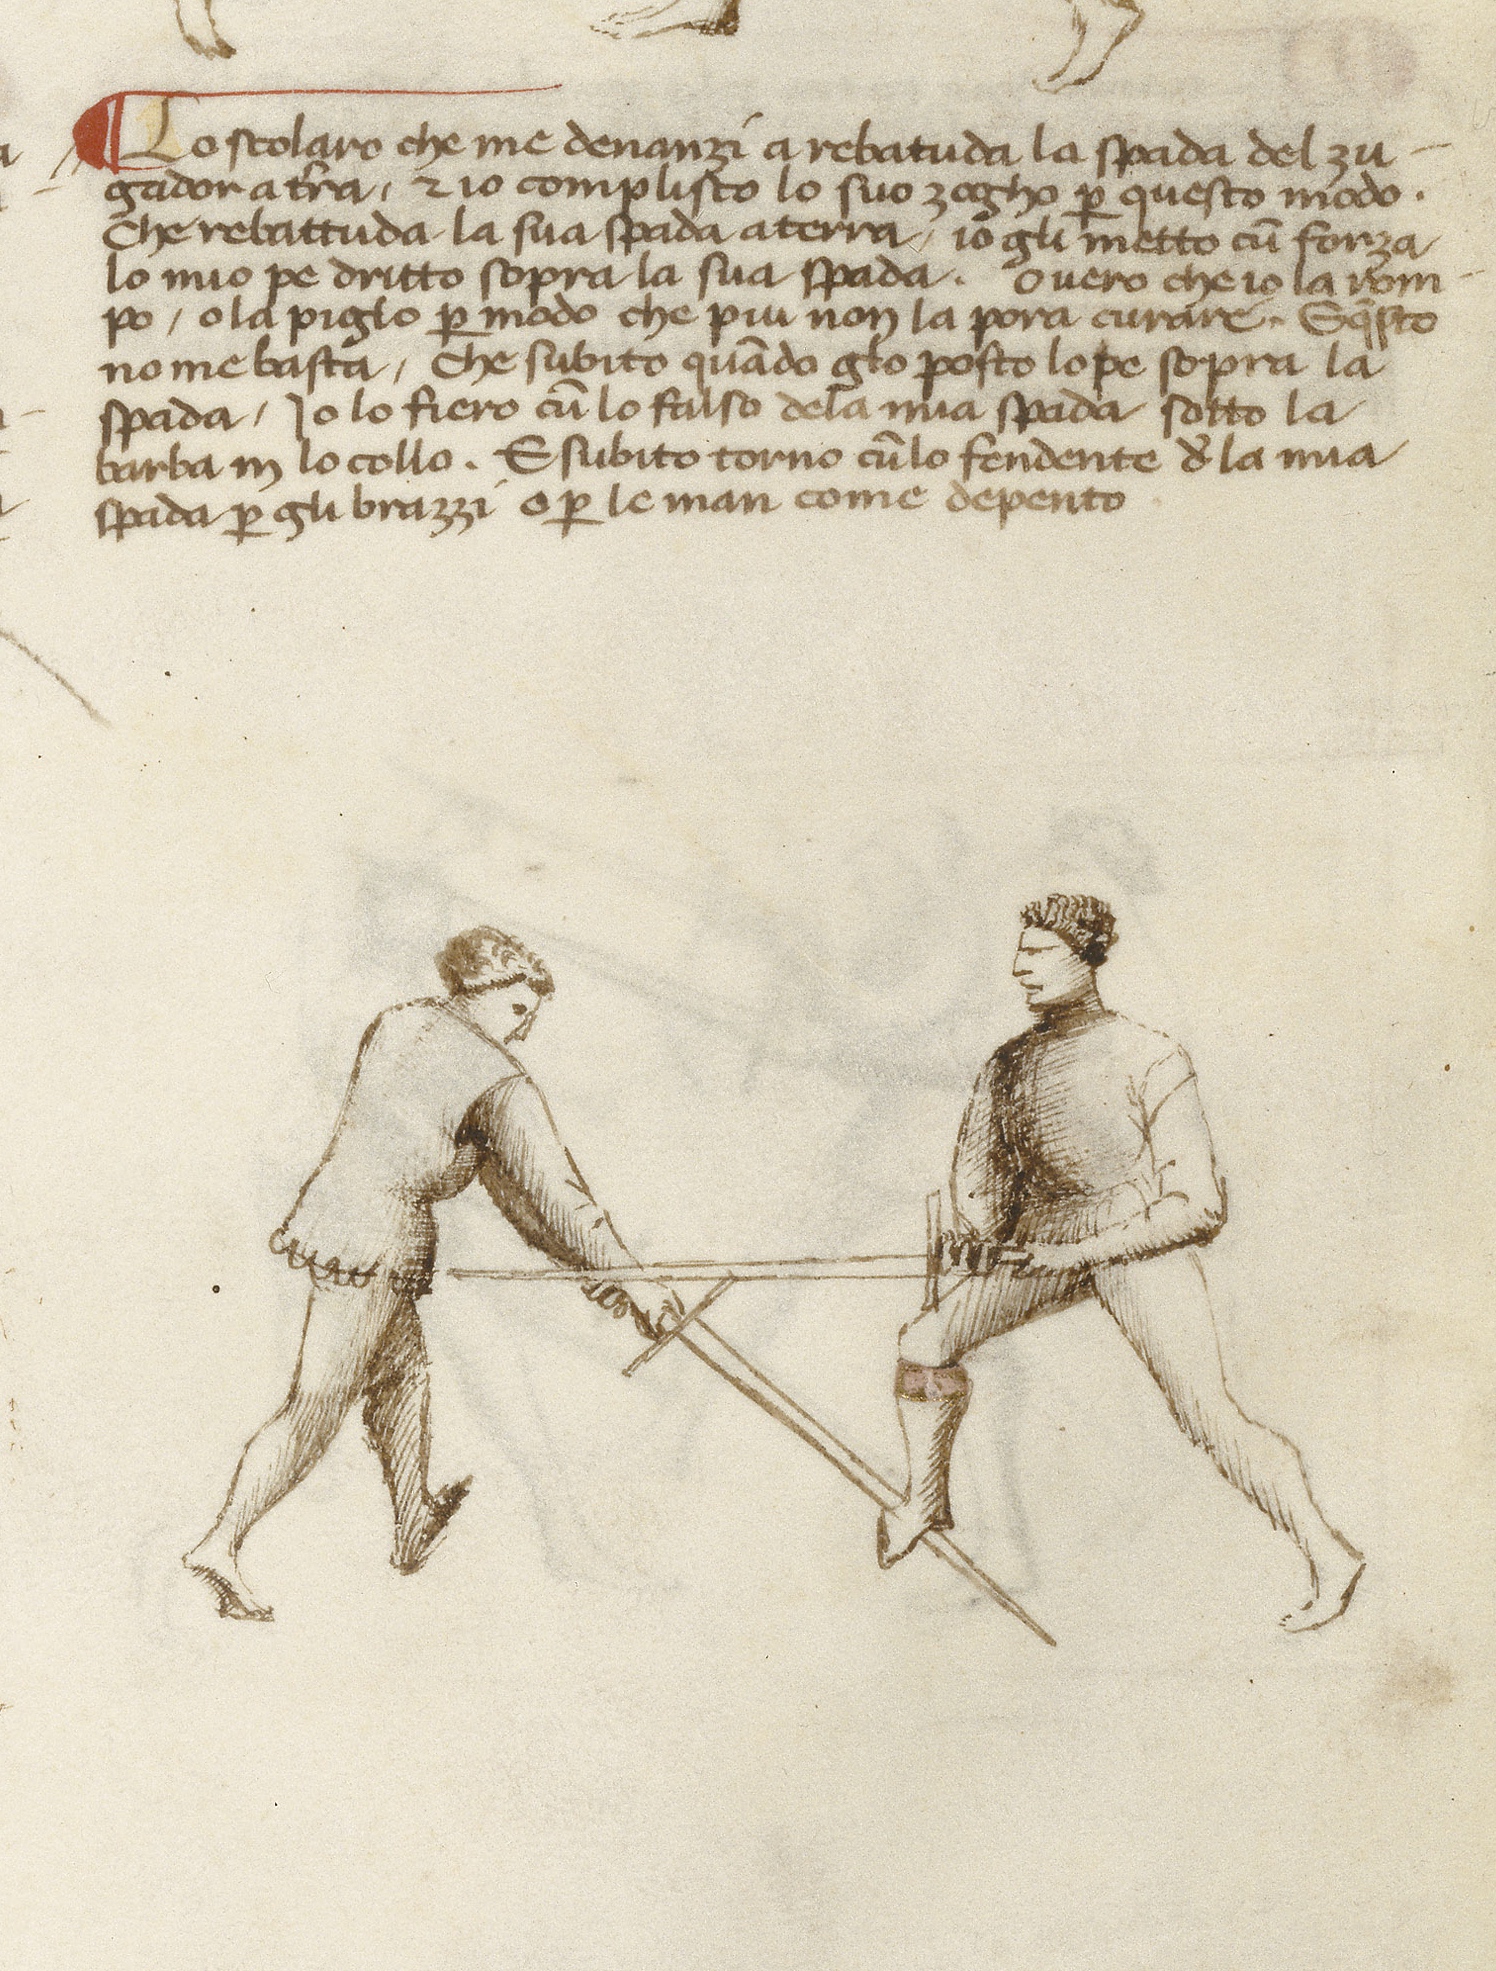 Lo scolaro che me denanzi a rebatuda la spada del zu-
gador a tr̃a, ⁊ io complisco lo suo zogho ꝑ questo modo.
Che rebattuda la sua spada a terra, io gli metto cũ forza
lo mio pe dritto sopra la sua spada. Overo che io la rom-
po, o la piglo ꝑ modo che piu non la pora curare. E q̃sto
no me basta, Che subito quãdo glo posto lo pe sopra la
spada, Io lo fiero cũ lo falso dela mia spada sotto la
barba in lo collo. E subito torno cũ lo fendente d̃ la mia
spada ꝑ gli brazzi o ꝑ le man come depento